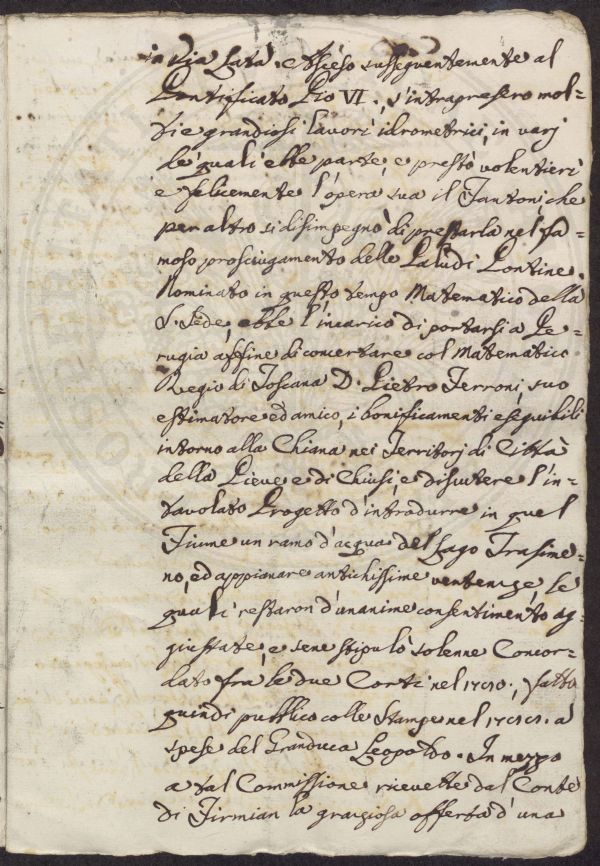 in Via Lata. Asceso susseguentemente al
Pontificato Pio VI., s'intrapresero mol=
ti e grandiosi lavori idrometrici, in varj
de' quali ebbe parte, e prestò volentieri
e felicemente l'opera sua il Fantoni, che
per altro si disimpegnò di prestarla nel fa=
moso prosciugamento delle Paludi Pontine.
Nominato in questo tempo Matematico della
S. Sede, ebbe l'incarico di portarsi a Pe=
rugia affine di concertare col Matematico
Regio di Toscana D. Pietro Ferroni, suo
estimatore ed amico, i bonificamenti eseguibili
intorno alla Chiana nei Territorj di Città
della Pieve e di Chiusi, e discutere l'in=
tavolato Progetto d'introdurre in quel
Fiume un ramo d'acqua del Lago Trasime=
no, ed appianare antichissime vertenze, le
quali restaron d'unanime consentimento ag=
giustate, e se ne stipulò solenne Concor=
dato fra le due Corti nel, fatto
quindi pubblico colle Stampe nel a
spese del Granduca Leopoldo. In mezzo
a tal Commissione ricevette dal Conte
di Firmian la graziosa offerta d'una